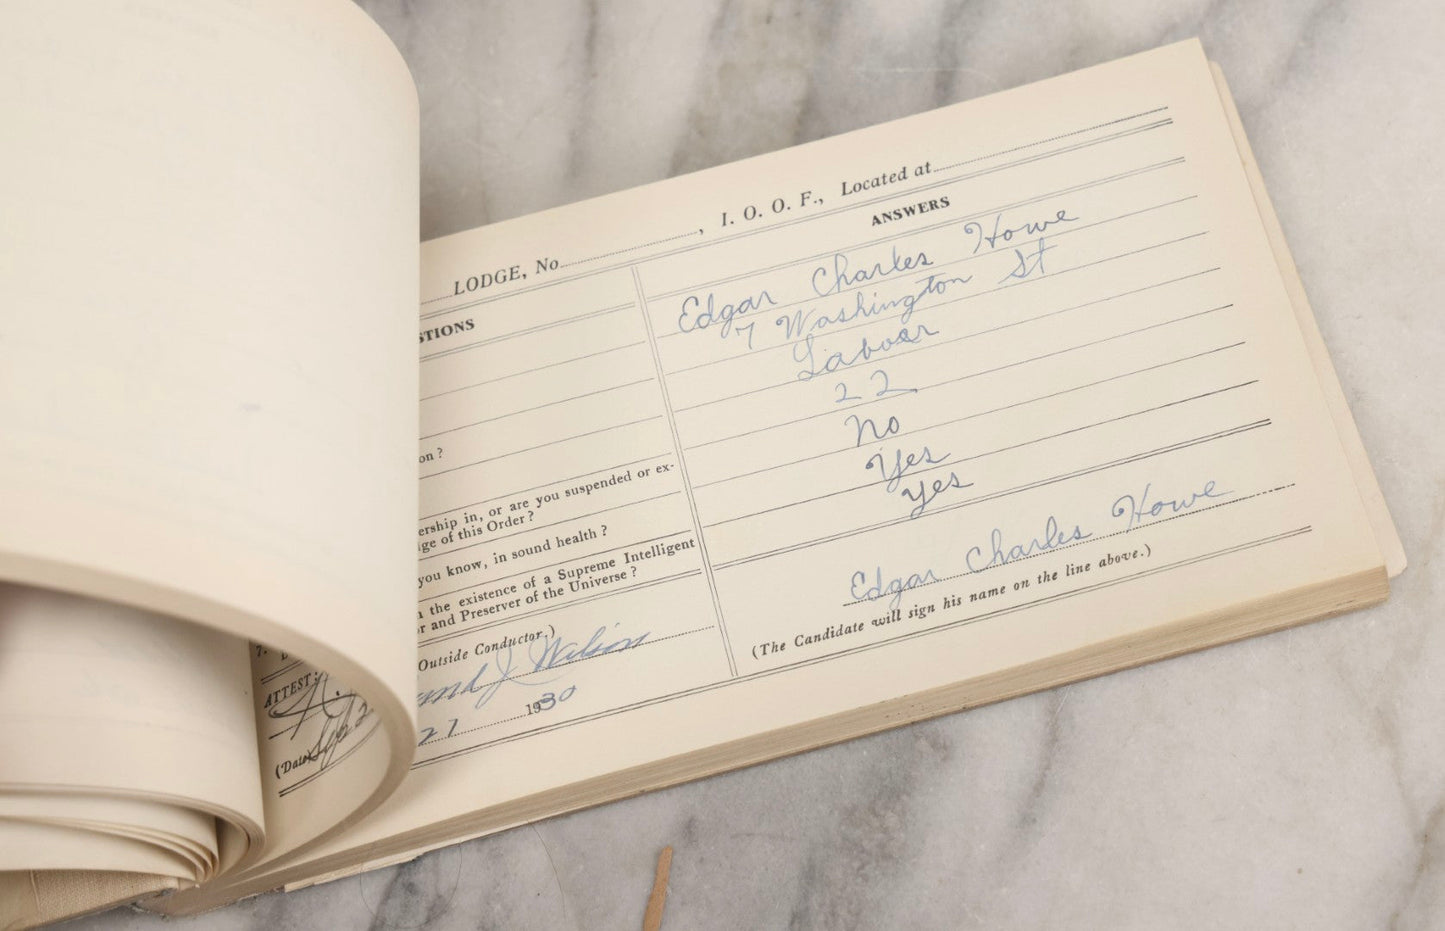 LODGE, No. , I. O. O. F., Located at
STIONS
ANSWERS
Edgar Charles Howe
7 Washington St
Laborer
22
on ?
No
ership in, or are you suspended or ex-
ge of this Order ?
Yes
you know, in sound health ?
yes
n the existence of a Supreme Intelligent
r and Preserver of the Universe ?
Edgar Charles Howe
(The Candidate will sign his name on the line above.)
Outside Conductor.)
J Wilson
27 1930
7.
ATTEST:
(Date) Sept 2